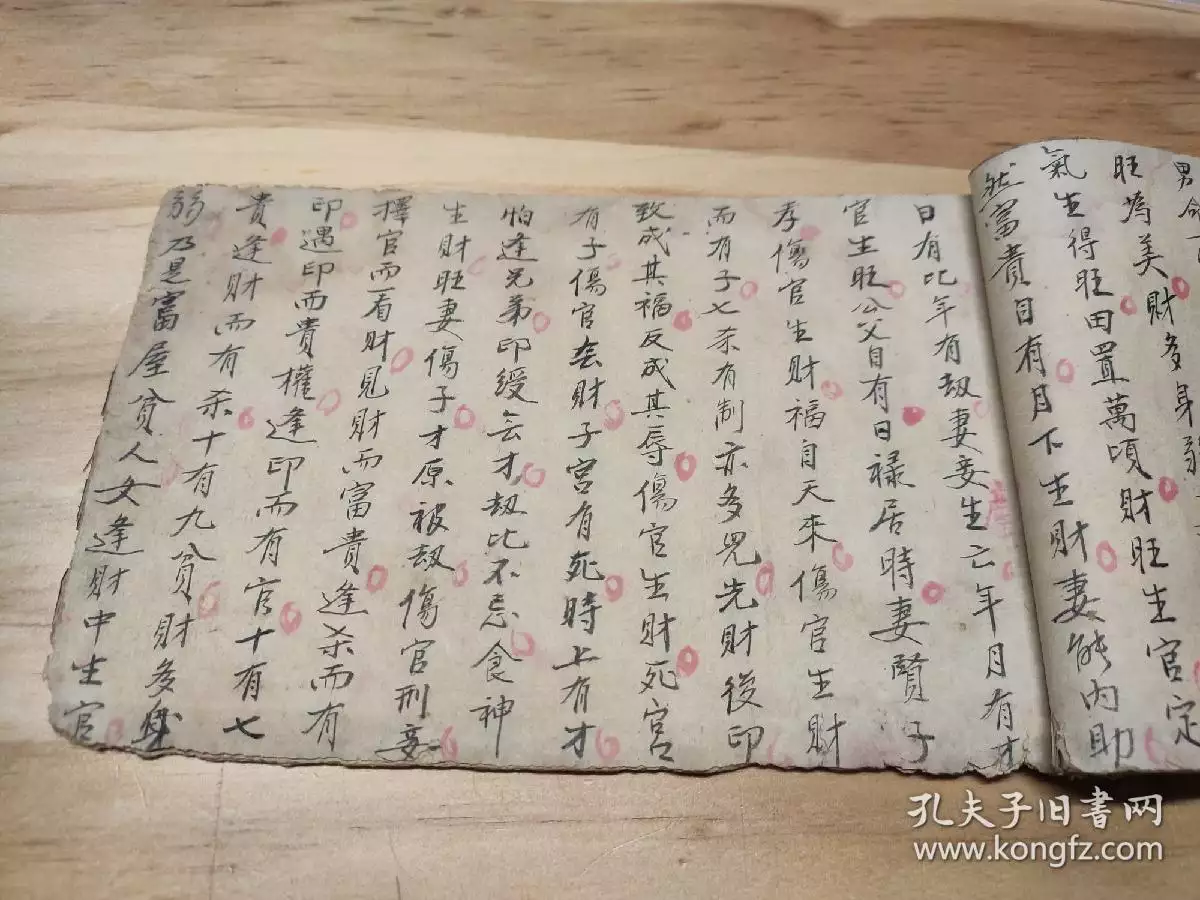 男命
旺為美財多身弱
氣生得旺田置萬頃財旺生官定
然富貴自有月下生財妻能內助
日有比年有刼妻妾生亡年月有才
官生旺公父自有日禄居時妻賢子
孝傷官生財福自天來傷官生財
而有子七杀有制亦多児先財後印
致成其福反成其辱傷官生財死宮
有子傷官会財子宮有死時上有才
怕逢兄弟印綬会才刼比不忌食神
生財旺妻傷子才原被刼傷官刑妾
擇官而看財見財而富貴逢杀而有
印遇印而貴權逢印而有官十有七
貴逢財而有杀十有九貧財多身
弱乃是富屋貧人女逢財中生官
孔夫子旧书网
www.kongfz.com